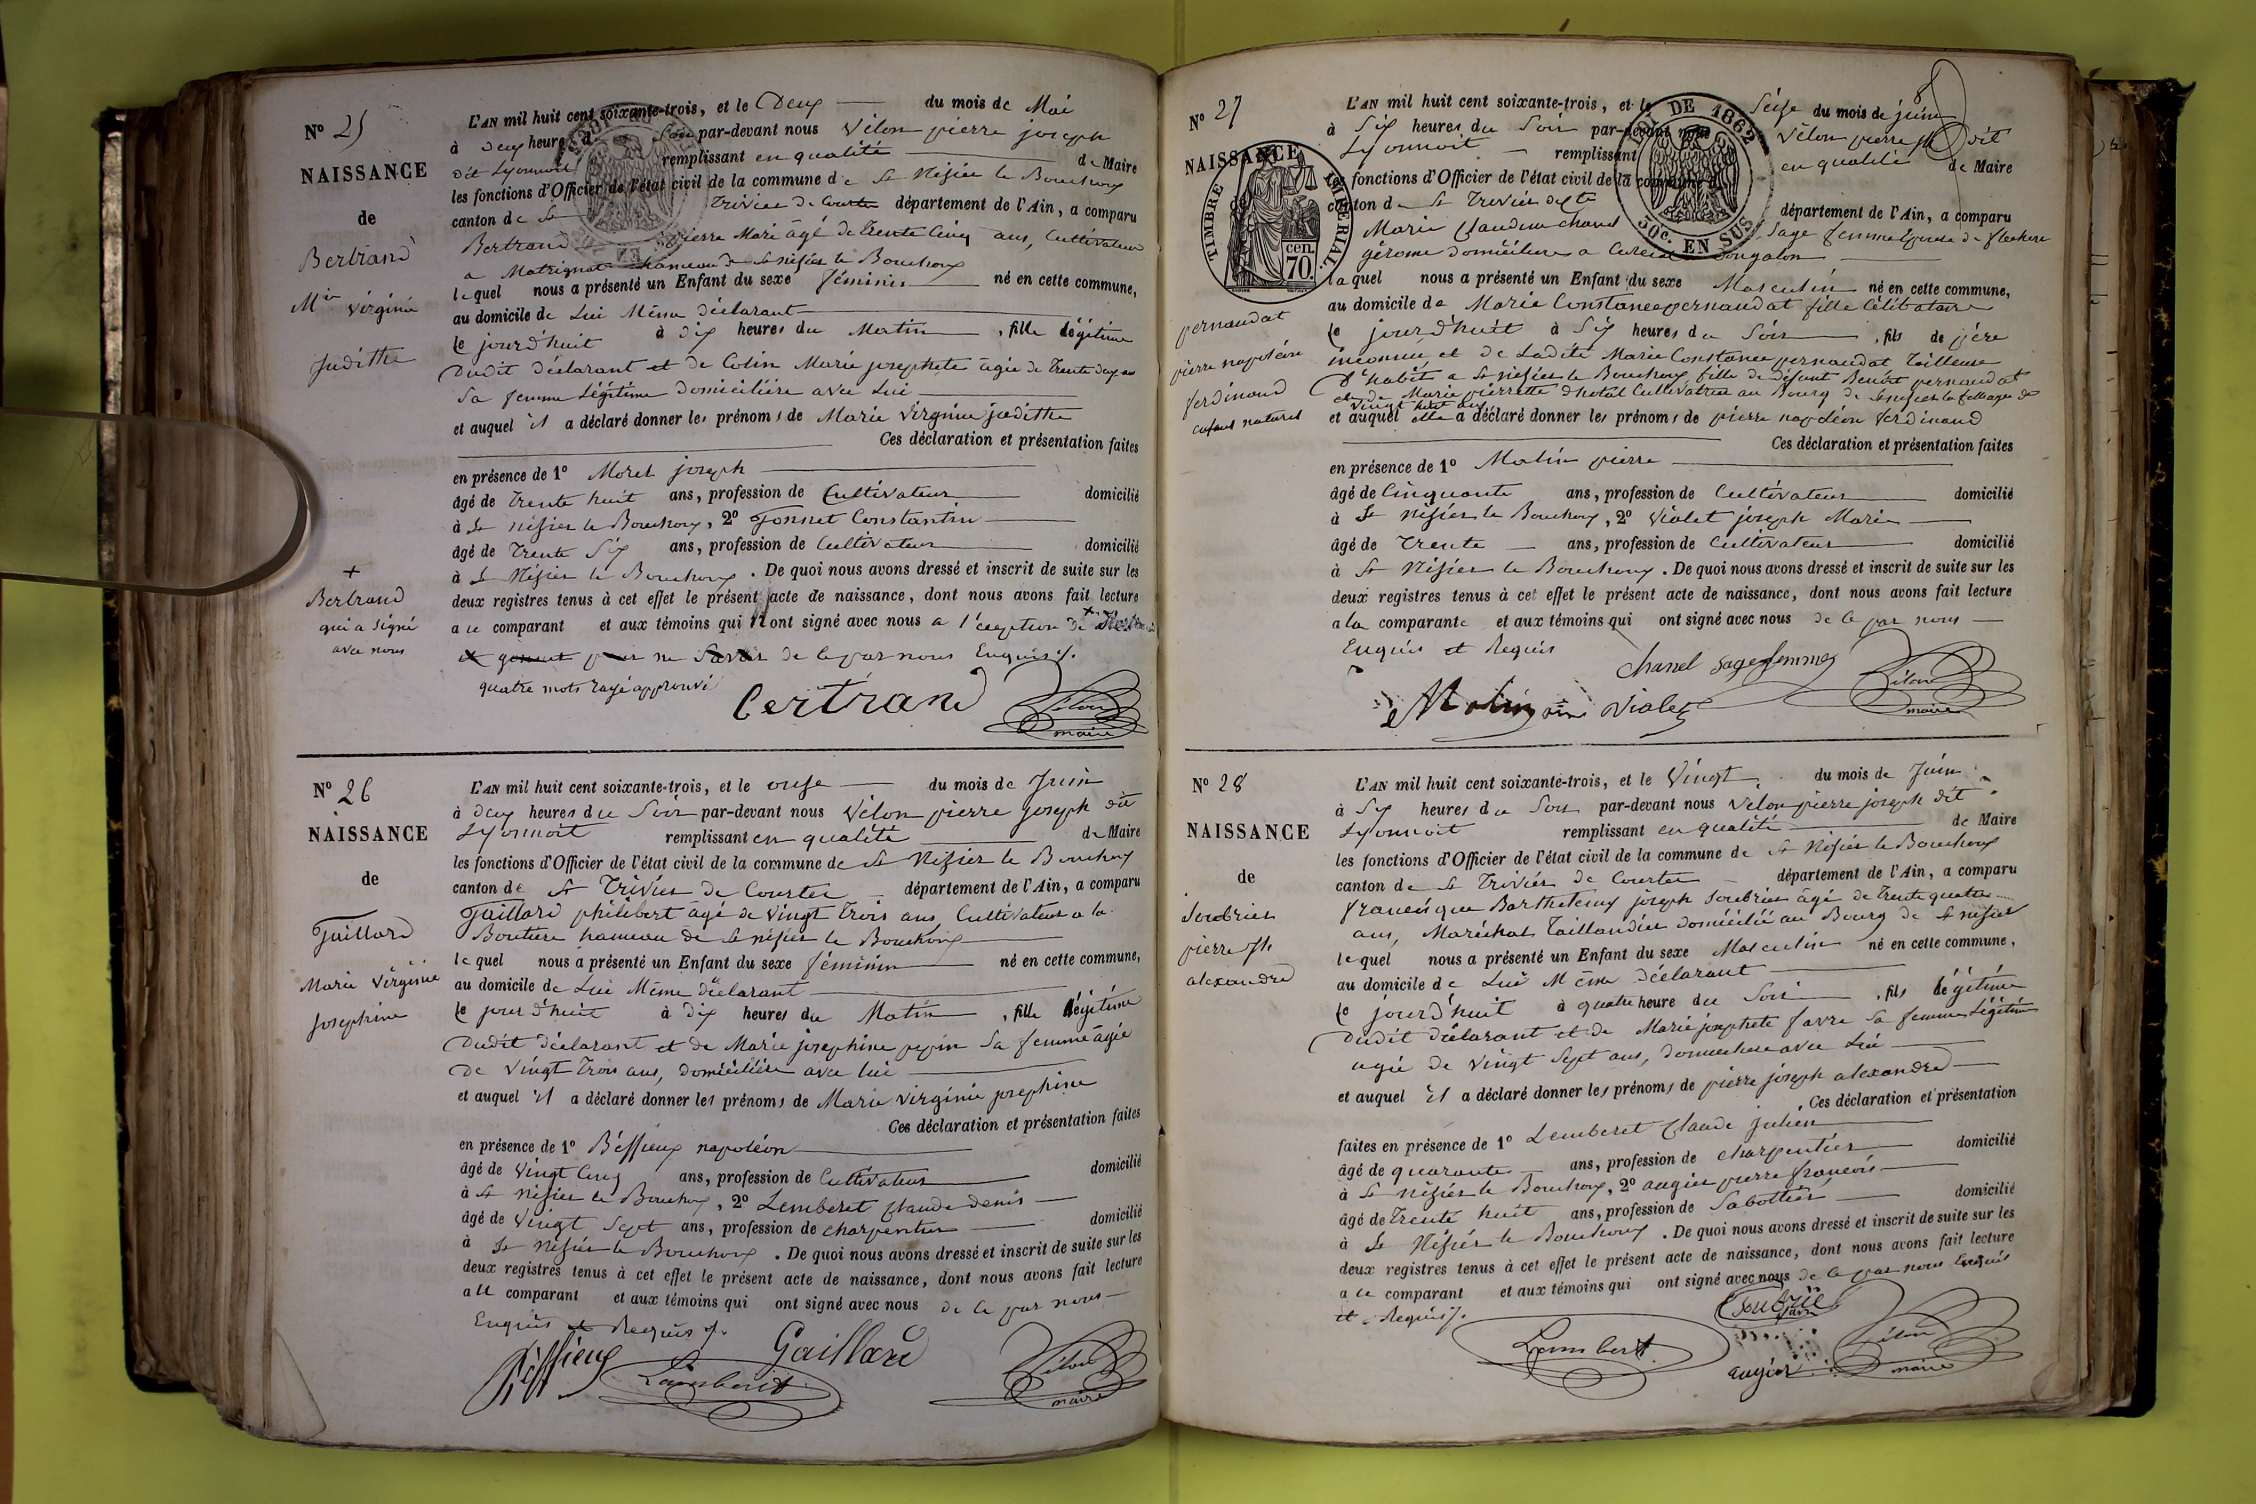 N° 25
NAISSANCE
de
Bertrand
Mie virginie
Judithe
L'AN mil huit cent soixante-trois, et le Deux du mois de Mai
à deux heures du Soir par-devant nous Vélon pierre joseph
dit Lyonnoit remplissant en qualité de Maire
les fonctions d'Officier de l'état civil de la commune de St Nizier le Bouchoux
canton de St Trivier de Courtes département de l'Ain, a comparu
Bertrand pierre Marie âgé de trente Cinq ans, Cultivateur
a Matrignat hameau de St nizier le Bouchoux
lequel nous a présenté un Enfant du sexe féminin né en cette commune,
au domicile de Lui Même déclarant
le jourd'huit à dix heures du Matin, fille légitime
Dudit déclarant et de Colin Marie josephete âgée de Trente deux ans
Sa femme Légitime domiciliée avec Lui
et auquel il a déclaré donner les prénoms de Marie virginie judithe
Ces déclaration et présentation faites
en présence de 1° Morel joseph
âgé de Trente huit ans, profession de Cultivateur domicilié
à St nizier le Bouchoux, 2° Gonnet Constantin
âgé de Trente Six ans, profession de Cultivateur domicilié
à St Nizier le Bouchoux. De quoi nous avons dressé et inscrit de suite sur les
deux registres tenus à cet effet le présent acte de naissance, dont nous avons fait lecture
a ce comparant et aux témoins qui ont signé avec nous a l'éception de
+
Bertrand
qui a signé
avec nous
et gonnet pour ne Savoir de ce par nous Enquis
quatre mots rayé approuvé
Bertrand
Vélon
maire
N° 26
NAISSANCE
de
Gaillard
Marie virginie
Josephine
L'AN mil huit cent soixante-trois, et le onze du mois de Juin
à deux heures du Soir par-devant nous Vélon pierre joseph dit
Lyonnoit remplissant en qualité de Maire
les fonctions d'Officier de l'état civil de la commune de St Nizier le Bouchoux
canton de St Trivier de Courtes département de l'Ain, a comparu
Gaillard philibert âgé de vingt Trois ans, Cultivateur a la
Boutiere hameau de St nizier le Bouchoux
lequel nous a présenté un Enfant du sexe féminin né en cette commune,
au domicile de Lui Même déclarant
le jourd'huit à dix heures du Matin, fille légitime
Dudit déclarant et de Marie josephine pepin Sa femme âgée
de vingt Trois ans, domiciliée avec lui
et auquel il a déclaré donner les prénoms de Marie virginie josephine
Ces déclaration et présentation faites
en présence de 1° Béffieux napoléon
âgé de vingt Cinq ans, profession de Cultivateur domicilié
à St nizier le Bouchoux, 2° Lemberet Claude denis
âgé de vingt Sept ans, profession de charpentier domicilié
à St Nizier le Bouchoux. De quoi nous avons dressé et inscrit de suite sur les
deux registres tenus à cet effet le présent acte de naissance, dont nous avons fait lecture
a ce comparant et aux témoins qui ont signé avec nous de ce par nous
Enquis et Requis
Gaillard
Lambert
Vélon
maire
N° 27
NAISSANCE
TIMBRE IMPERIAL
70 cen.
LOI DE 1862
50c. EN SUS
pernaudat
pierre napoléon
ferdinand
enfant naturel
L'AN mil huit cent soixante-trois, et le Seize du mois de juin
à Six heures du Soir par-devant nous Vélon pierre jh dit
Lyonnoit remplissant en qualité de Maire
les fonctions d'Officier de l'état civil de la commune d
canton de St Trivier de Cte département de l'Ain, a comparu
Marie Claudine chanel Sage femme Epouse de flechere
gérome domiciliée a Curciat Dongalon
laquel nous a présenté un Enfant du sexe Masculin né en cette commune,
au domicile de Marie Constance pernaudat fille Célibataire
le jourd'huit à Six heures du Soir, fils de père
inconnu et de Ladite Marie Constance pernaudat Tailleuse
D'habit a St nizier le Bouchoux fille de défunt Benoit pernaudat
et de Marie pierrette dhotal Cultivatrice au Bourg de St nizier la fille agée de
vingt huit ans
et auquel elle a déclaré donner les prénoms de pierre napoléon ferdinand
Ces déclaration et présentation faites
en présence de 1° Molin pierre
âgé de Cinquante ans, profession de Cultivateur domicilié
à St nizier le Bouchoux, 2° Violet joseph Marie
âgé de Trente ans, profession de Cultivateur domicilié
à St Nizier le Bouchoux. De quoi nous avons dressé et inscrit de suite sur les
deux registres tenus à cet effet le présent acte de naissance, dont nous avons fait lecture
a la comparante et aux témoins qui ont signé avec nous de ce par nous
Enquis et Requis
chanel sage femme
Molin
Violet
Vélon
maire
N° 28
NAISSANCE
de
Soubrier
pierre jh
alexandre
L'AN mil huit cent soixante-trois, et le Vingt du mois de Juin
à Six heures du Soir par-devant nous Vélon pierre joseph dit
Lyonnoit remplissant en qualité de Maire
les fonctions d'Officier de l'état civil de la commune de St Nizier le Bouchoux
canton de St Trivier de Courtes département de l'Ain, a comparu
francisque Barthelemy joseph Soubrier âgé de Trente quatre
ans, Maréchal Taillandier domicilié au Bourg de St nizier
lequel nous a présenté un Enfant du sexe Masculin né en cette commune,
au domicile de Lui Même déclarant
le jourd'huit à quatre heure du Soir, fils légitime
Dudit déclarant et de Marie josephete favre Sa femme Légitime
agée de vingt Sept ans, domiciliée avec Lui
et auquel il a déclaré donner les prénoms de pierre joseph alexandre
Ces déclaration et présentation
faites en présence de 1° Lemberet Claude julien
âgé de quarante ans, profession de charpentier domicilié
à St nizier le Bouchoux, 2° augier pierre francois
âgé de Trente huit ans, profession de Sabottier domicilié
à St Nizier le Bouchoux. De quoi nous avons dressé et inscrit de suite sur les
deux registres tenus à cet effet le présent acte de naissance, dont nous avons fait lecture
a ce comparant et aux témoins qui ont signé avec nous de ce par nous Enquis
et Requis
Soubrier
Lambert
augier
Vélon
maire